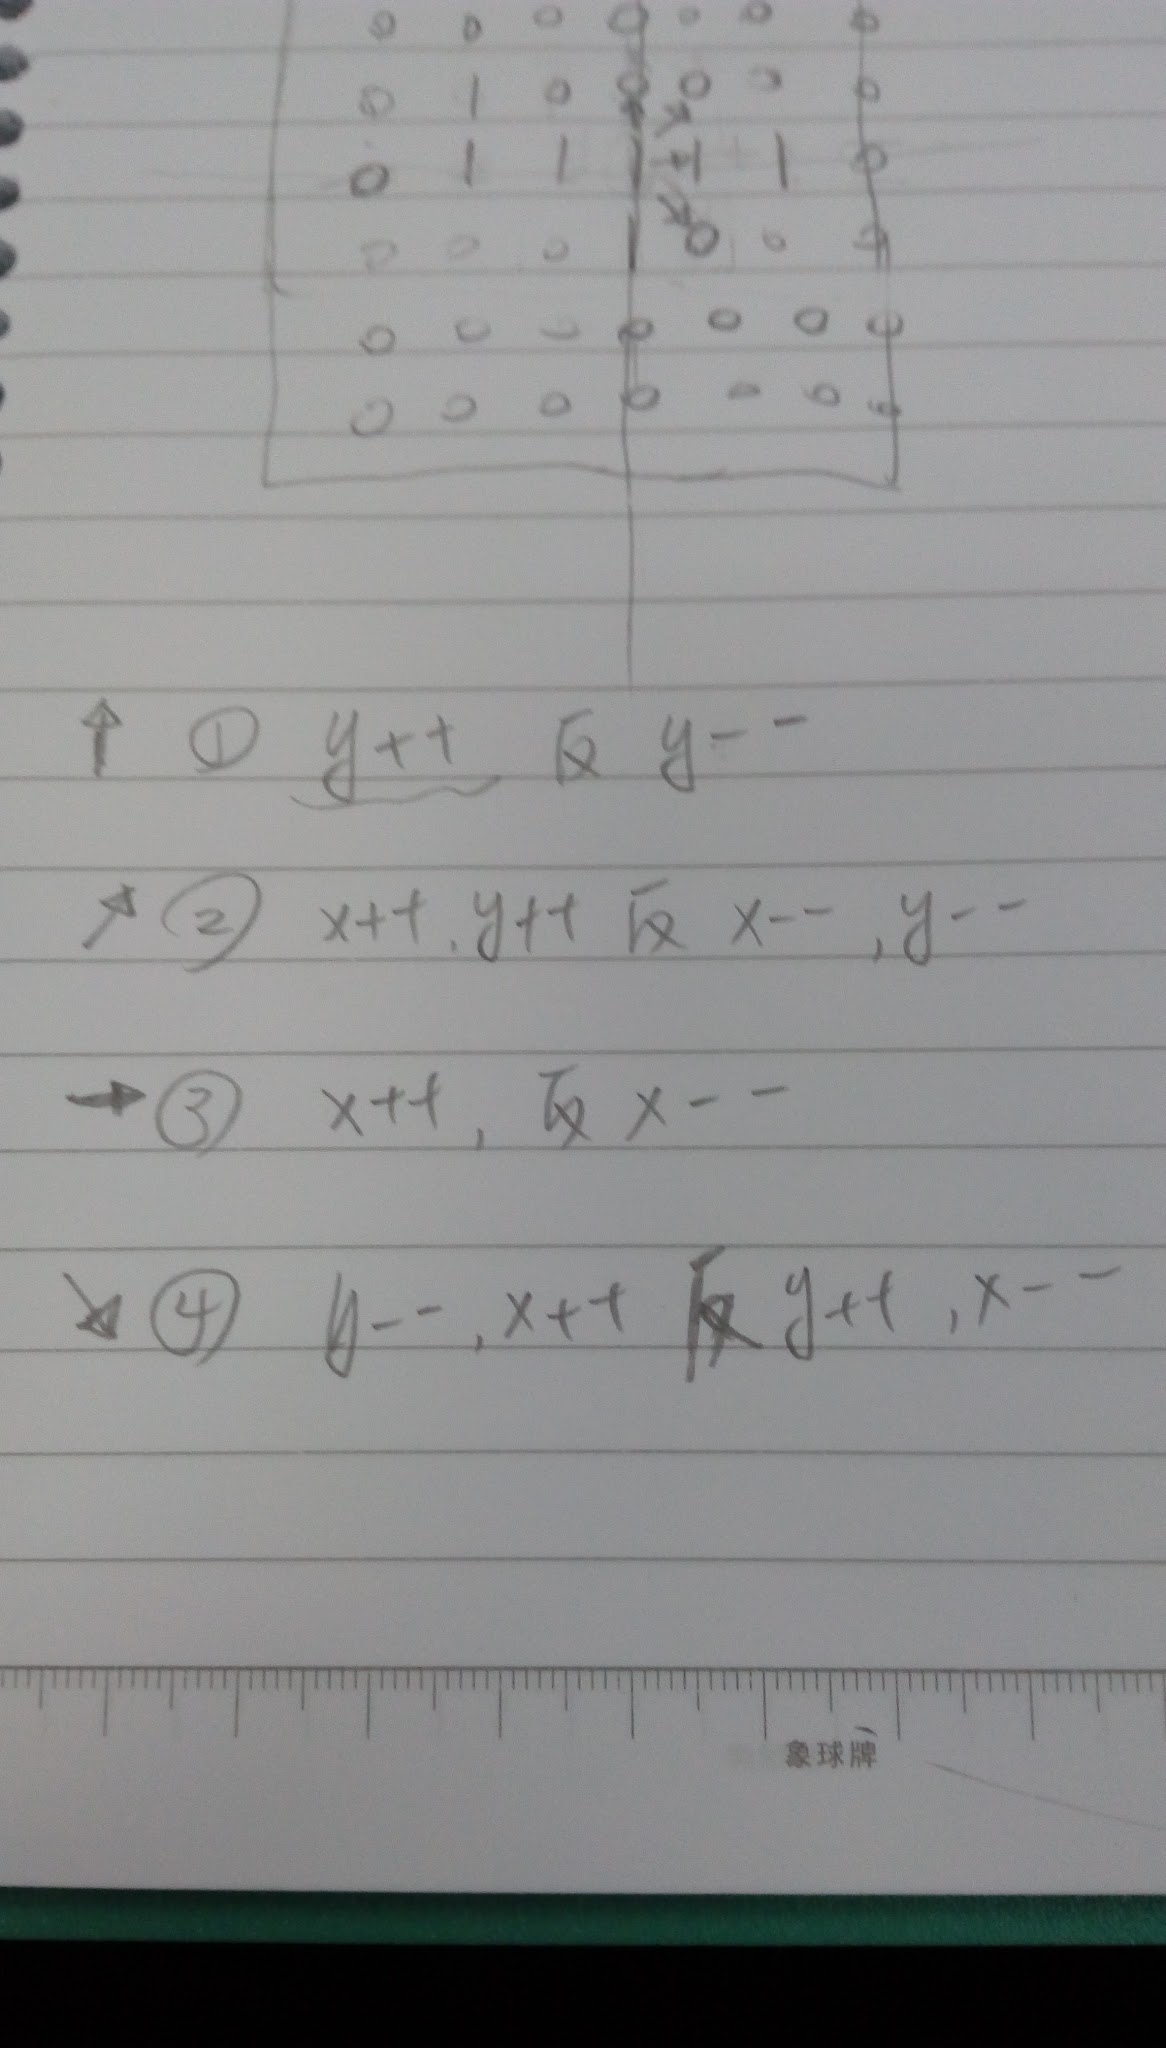 0 0 0 0 0 0 0
0 1 0 0 0 0 0
0 1 1 1 1 1 0
0 0 0 1 0 0
0 0 0 0 0 0 0
0 0 0 0 0 0
↑ ① y++ 反 y--
↗ ② x++, y++ 反 x--, y--
→ ③ x++, 反 x--
↘ ④ y--, x++ 反 y++, x--
象球牌